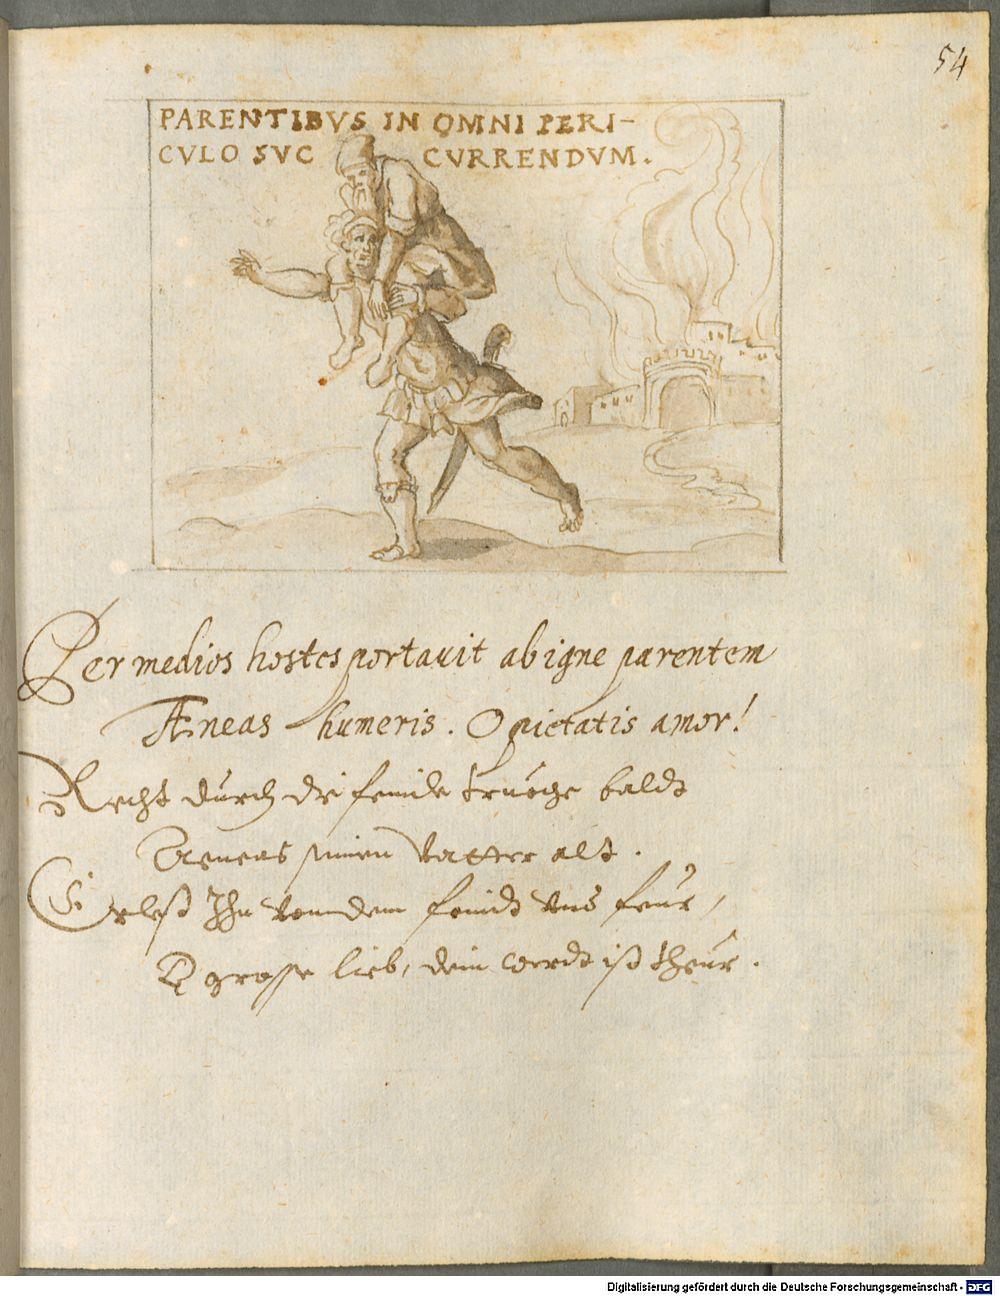 54
PARENTIBVS IN OMNI PERI-
CVLO SVC CVRRENDVM.
Per medios hostes portauit ab igne parentem
Æneas humeris. O pietatis amor!
Recht durch di feinde truoge baldt
Aeneas seinen Vatter alt.
Erlest Ihn von dem feindt vnd feur,
O grosse lieb, dein werdt ist theur.
Digitalisierung gefördert durch die Deutsche Forschungsgemeinschaft - DFG